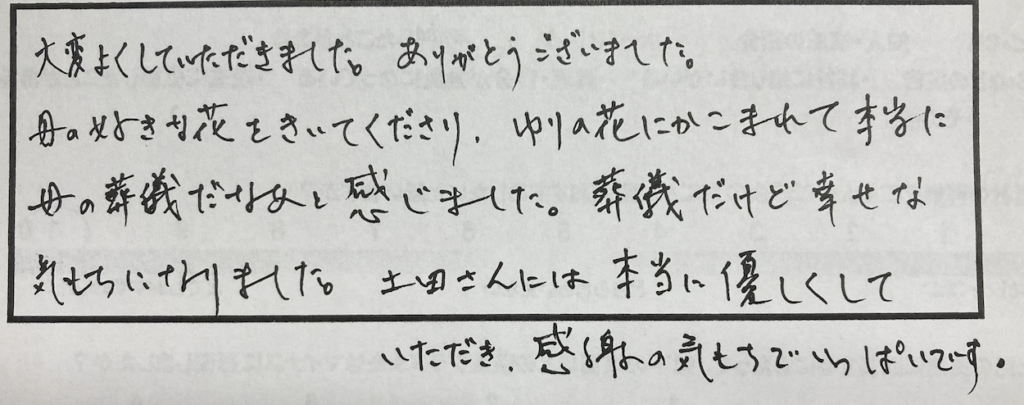 大変よくしていただきました。ありがとうございました。
母の好きな花をきいてくださり、ゆりの花にかこまれて本当に
母の葬儀だなぁと感じました。葬儀だけど幸せな
気もちになりました。土田さんには本当に優しくして
いただき、感謝の気もちでいっぱいです。